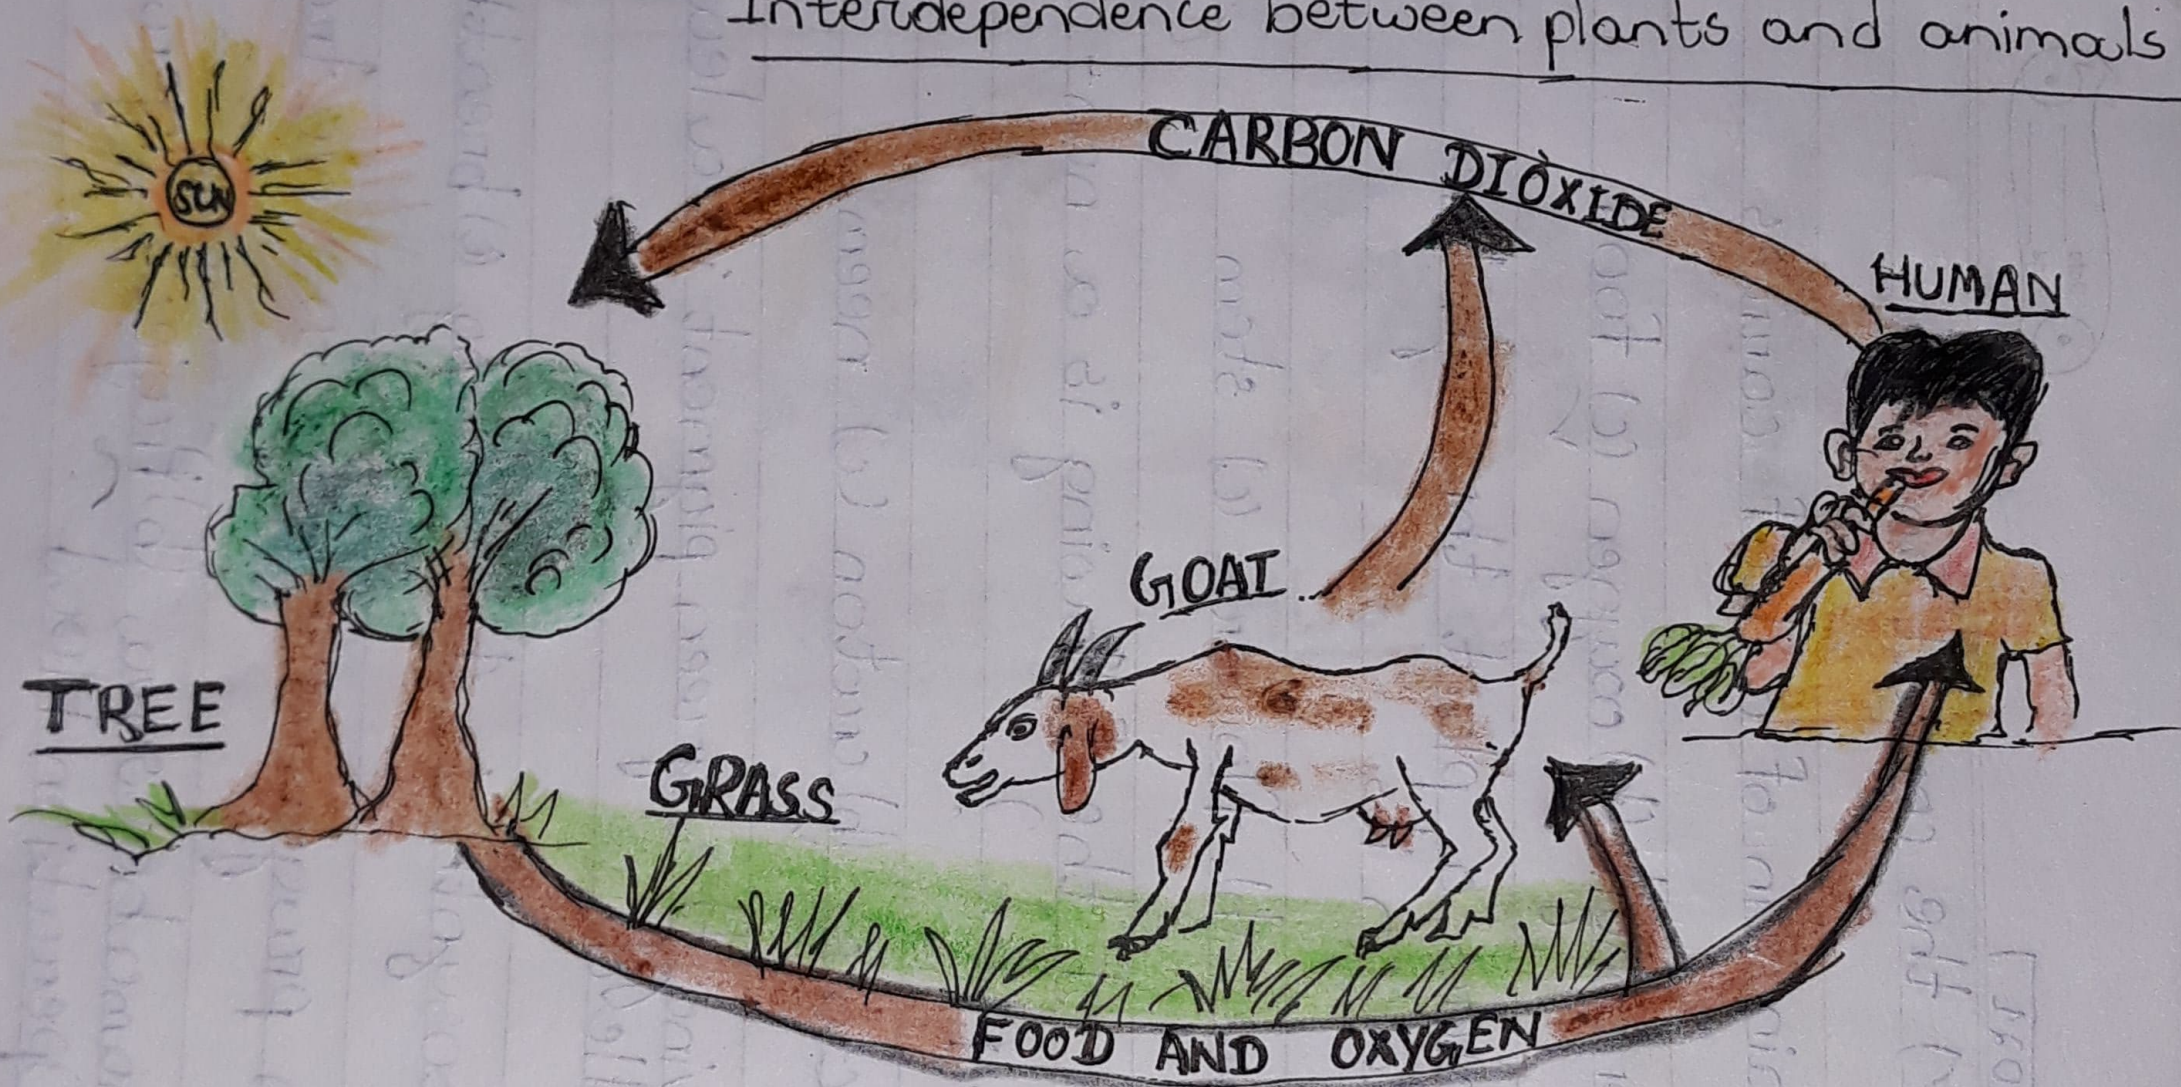 Interdependence between plants and animals
CARBON DIOXIDE
SUN
HUMAN
GOAT
TREE
GRASS
FOOD AND OXYGEN